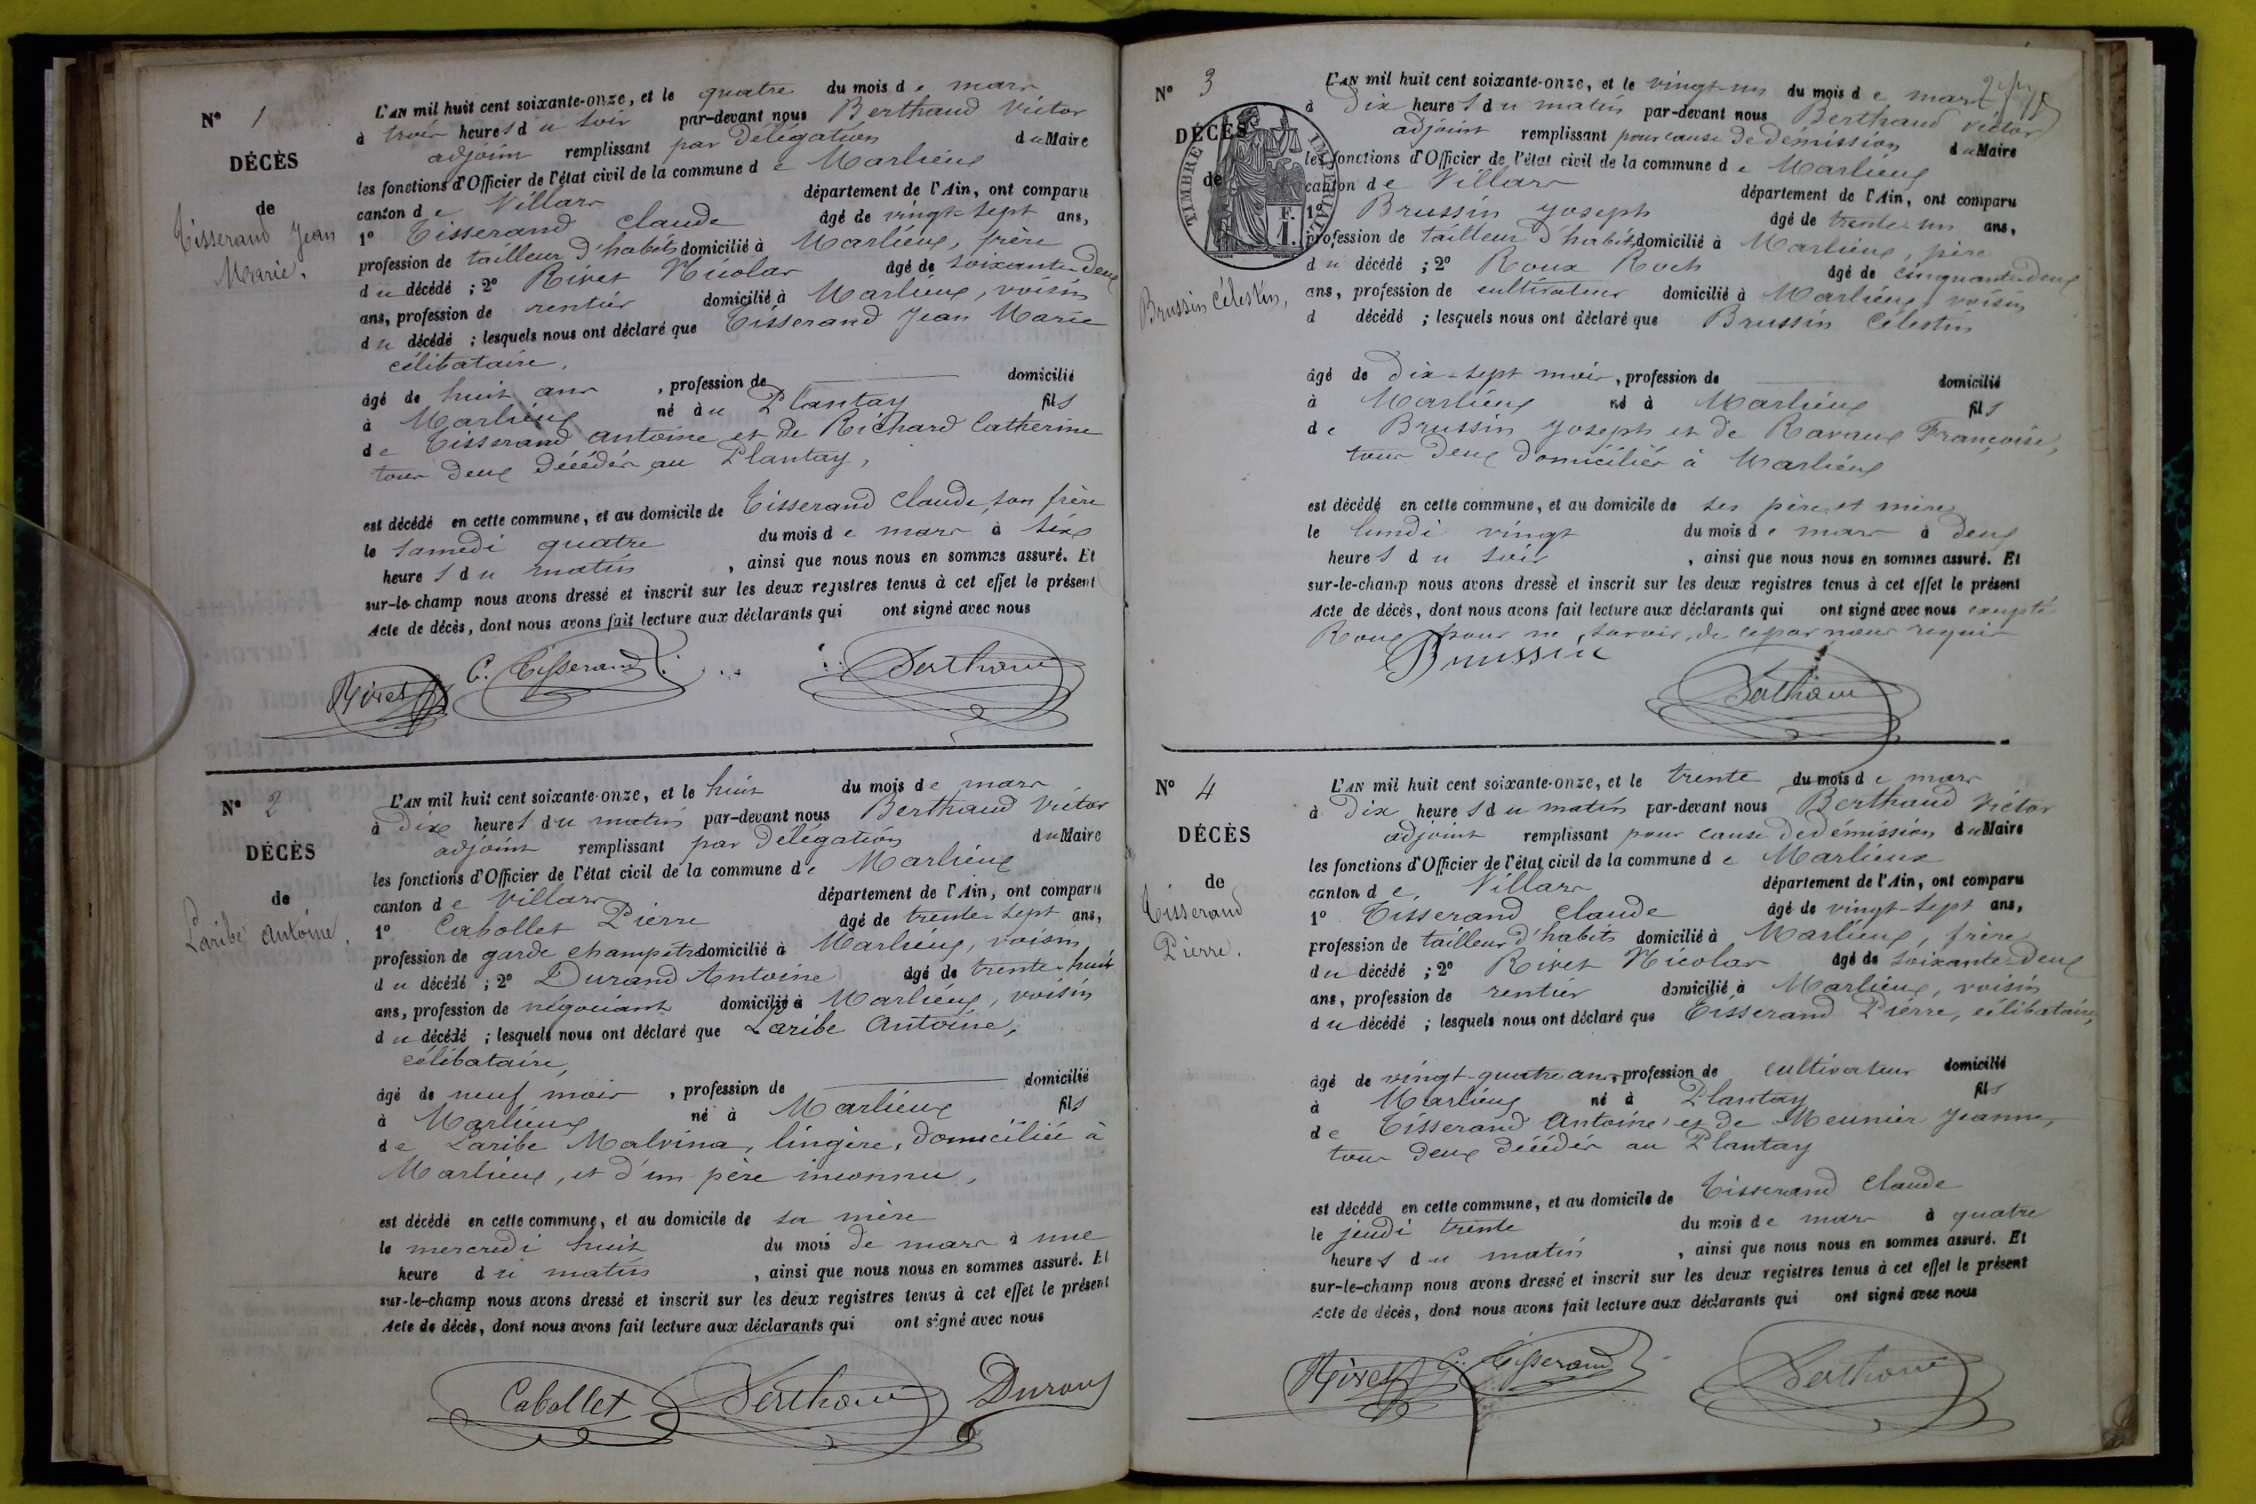 N° 1
DÉCÈS
de
Tisserand Jean
Marie.
L'AN mil huit cent soixante-onze, et le quatre du mois de mars
à trois heures du soir par-devant nous Berthaud Victor
adjoint remplissant par délégation du Maire
les fonctions d'Officier de l'état civil de la commune de Marlieux
canton de Villars département de l'Ain, ont comparu
1° Tisserand Claude âgé de vingt-sept ans,
profession de tailleur d'habits domicilié à Marlieux, frère
du décédé ; 2° Rivet Nicolas âgé de soixante-deux
ans, profession de rentier domicilié à Marlieux, voisin
du décédé ; lesquels nous ont déclaré que Tisserand Jean Marie
célibataire,
âgé de huit ans , profession de domicilié
à Marlieux né au Plantay fils
de Tisserand Antoine et de Richard Catherine
tous deux décédés au Plantay,
est décédé en cette commune, et au domicile de Tisserand Claude, son frère
le samedi quatre du mois de mars à six
heures du matin , ainsi que nous nous en sommes assuré. Et
sur-le-champ nous avons dressé et inscrit sur les deux registres tenus à cet effet le présent
Acte de décès, dont nous avons fait lecture aux déclarants qui ont signé avec nous
Rivet C. Tisserand Berthaud
N° 2
DÉCÈS
de
Laribe Antoine.
L'AN mil huit cent soixante-onze, et le huit du mois de mars
à dix heures du matin par-devant nous Berthaud Victor
adjoint remplissant par délégation du Maire
les fonctions d'Officier de l'état civil de la commune de Marlieux
canton de Villars département de l'Ain, ont comparu
1° Cabollet Pierre âgé de trente-sept ans,
profession de garde champêtre domicilié à Marlieux, voisin
du décédé ; 2° Durand Antoine âgé de trente-huit
ans, profession de négociant domicilié à Marlieux, voisin
du décédé ; lesquels nous ont déclaré que Laribe Antoine,
célibataire,
âgé de neuf mois , profession de domicilié
à Marlieux né à Marlieux fils
de Laribe Malvina, lingère, domiciliée à
Marlieux, et d'un père inconnu,
est décédé en cette commune, et au domicile de sa mère
le mercredi huit du mois de mars à une
heure du matin , ainsi que nous nous en sommes assuré. Et
sur-le-champ nous avons dressé et inscrit sur les deux registres tenus à cet effet le présent
Acte de décès, dont nous avons fait lecture aux déclarants qui ont signé avec nous
Cabollet Berthaud Durand
N° 3
DÉCÈS
de
TIMBRE IMPÉRIAL
1 F.
Brussin Célestin,
L'AN mil huit cent soixante-onze, et le vingt-un du mois de mars
à dix heures du matin par-devant nous Berthaud Victor
adjoint remplissant pour cause de démission du Maire
les fonctions d'Officier de l'état civil de la commune de Marlieux
canton de Villars département de l'Ain, ont comparu
1° Brussin Joseph âgé de trente-un ans,
profession de tailleur d'habits domicilié à Marlieux, père
du décédé ; 2° Roux Roch âgé de cinquante-deux
ans, profession de cultivateur domicilié à Marlieux, voisin
d décédé ; lesquels nous ont déclaré que Brussin Célestin
âgé de dix-sept mois, profession de domicilié
à Marlieux né à Marlieux fils
de Brussin Joseph et de Ravaux Françoise,
tous deux domiciliés à Marlieux
est décédé en cette commune, et au domicile de ses père et mère
le lundi vingt du mois de mars à deux
heures du soir , ainsi que nous nous en sommes assuré. Et
sur-le-champ nous avons dressé et inscrit sur les deux registres tenus à cet effet le présent
Acte de décès, dont nous avons fait lecture aux déclarants qui ont signé avec nous excepté
Roux pour ne savoir, de ce par nous requis
Brussin
Berthaud
N° 4
DÉCÈS
de
Tisserand
Pierre.
L'AN mil huit cent soixante-onze, et le trente du mois de mars
à dix heures du matin par-devant nous Berthaud Victor
adjoint remplissant pour cause de démission du Maire
les fonctions d'Officier de l'état civil de la commune de Marlieux
canton de Villars département de l'Ain, ont comparu
1° Tisserand Claude âgé de vingt-sept ans,
profession de tailleur d'habits domicilié à Marlieux, frère
du décédé ; 2° Rivet Nicolas âgé de soixante-deux
ans, profession de rentier domicilié à Marlieux, voisin
du décédé ; lesquels nous ont déclaré que Tisserand Pierre, célibataire,
âgé de vingt-quatre ans, profession de cultivateur domicilié
à Marlieux né à Plantay fils
de Tisserand Antoine et de Meunier Jeanne,
tous deux décédés au Plantay
est décédé en cette commune, et au domicile de Tisserand Claude
le jeudi trente du mois de mars à quatre
heures du matin , ainsi que nous nous en sommes assuré. Et
sur-le-champ nous avons dressé et inscrit sur les deux registres tenus à cet effet le présent
Acte de décès, dont nous avons fait lecture aux déclarants qui ont signé avec nous
Rivet C. Tisserand Berthaud